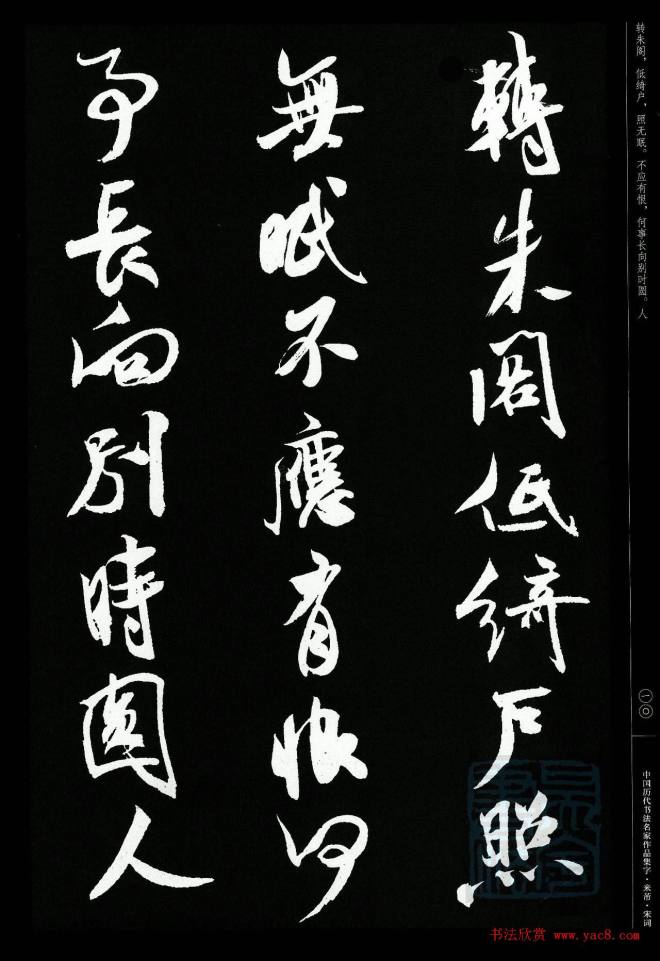 轉朱閣低綺户照
無眠不應有恨何
事長向別時圓人
转朱阁，低绮户，照无眠。不应有恨，何事长向别时圆。人
一〇
中国历代书法名家作品集字·米芾·宋词
书法欣赏 www.yac8.com